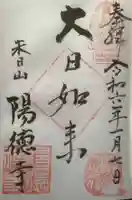 奉拝 令和六年一月七日
大日如来
朱日山
陽徳寺